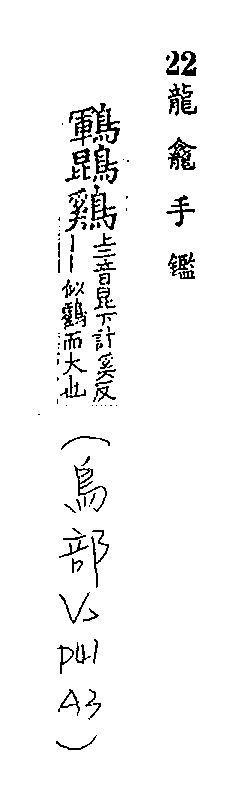 22龍龕手鑑
鶤鵾鷄上二音昆下計奚反
丨丨似鶴而大也
(鳥部V2
P41
A3)